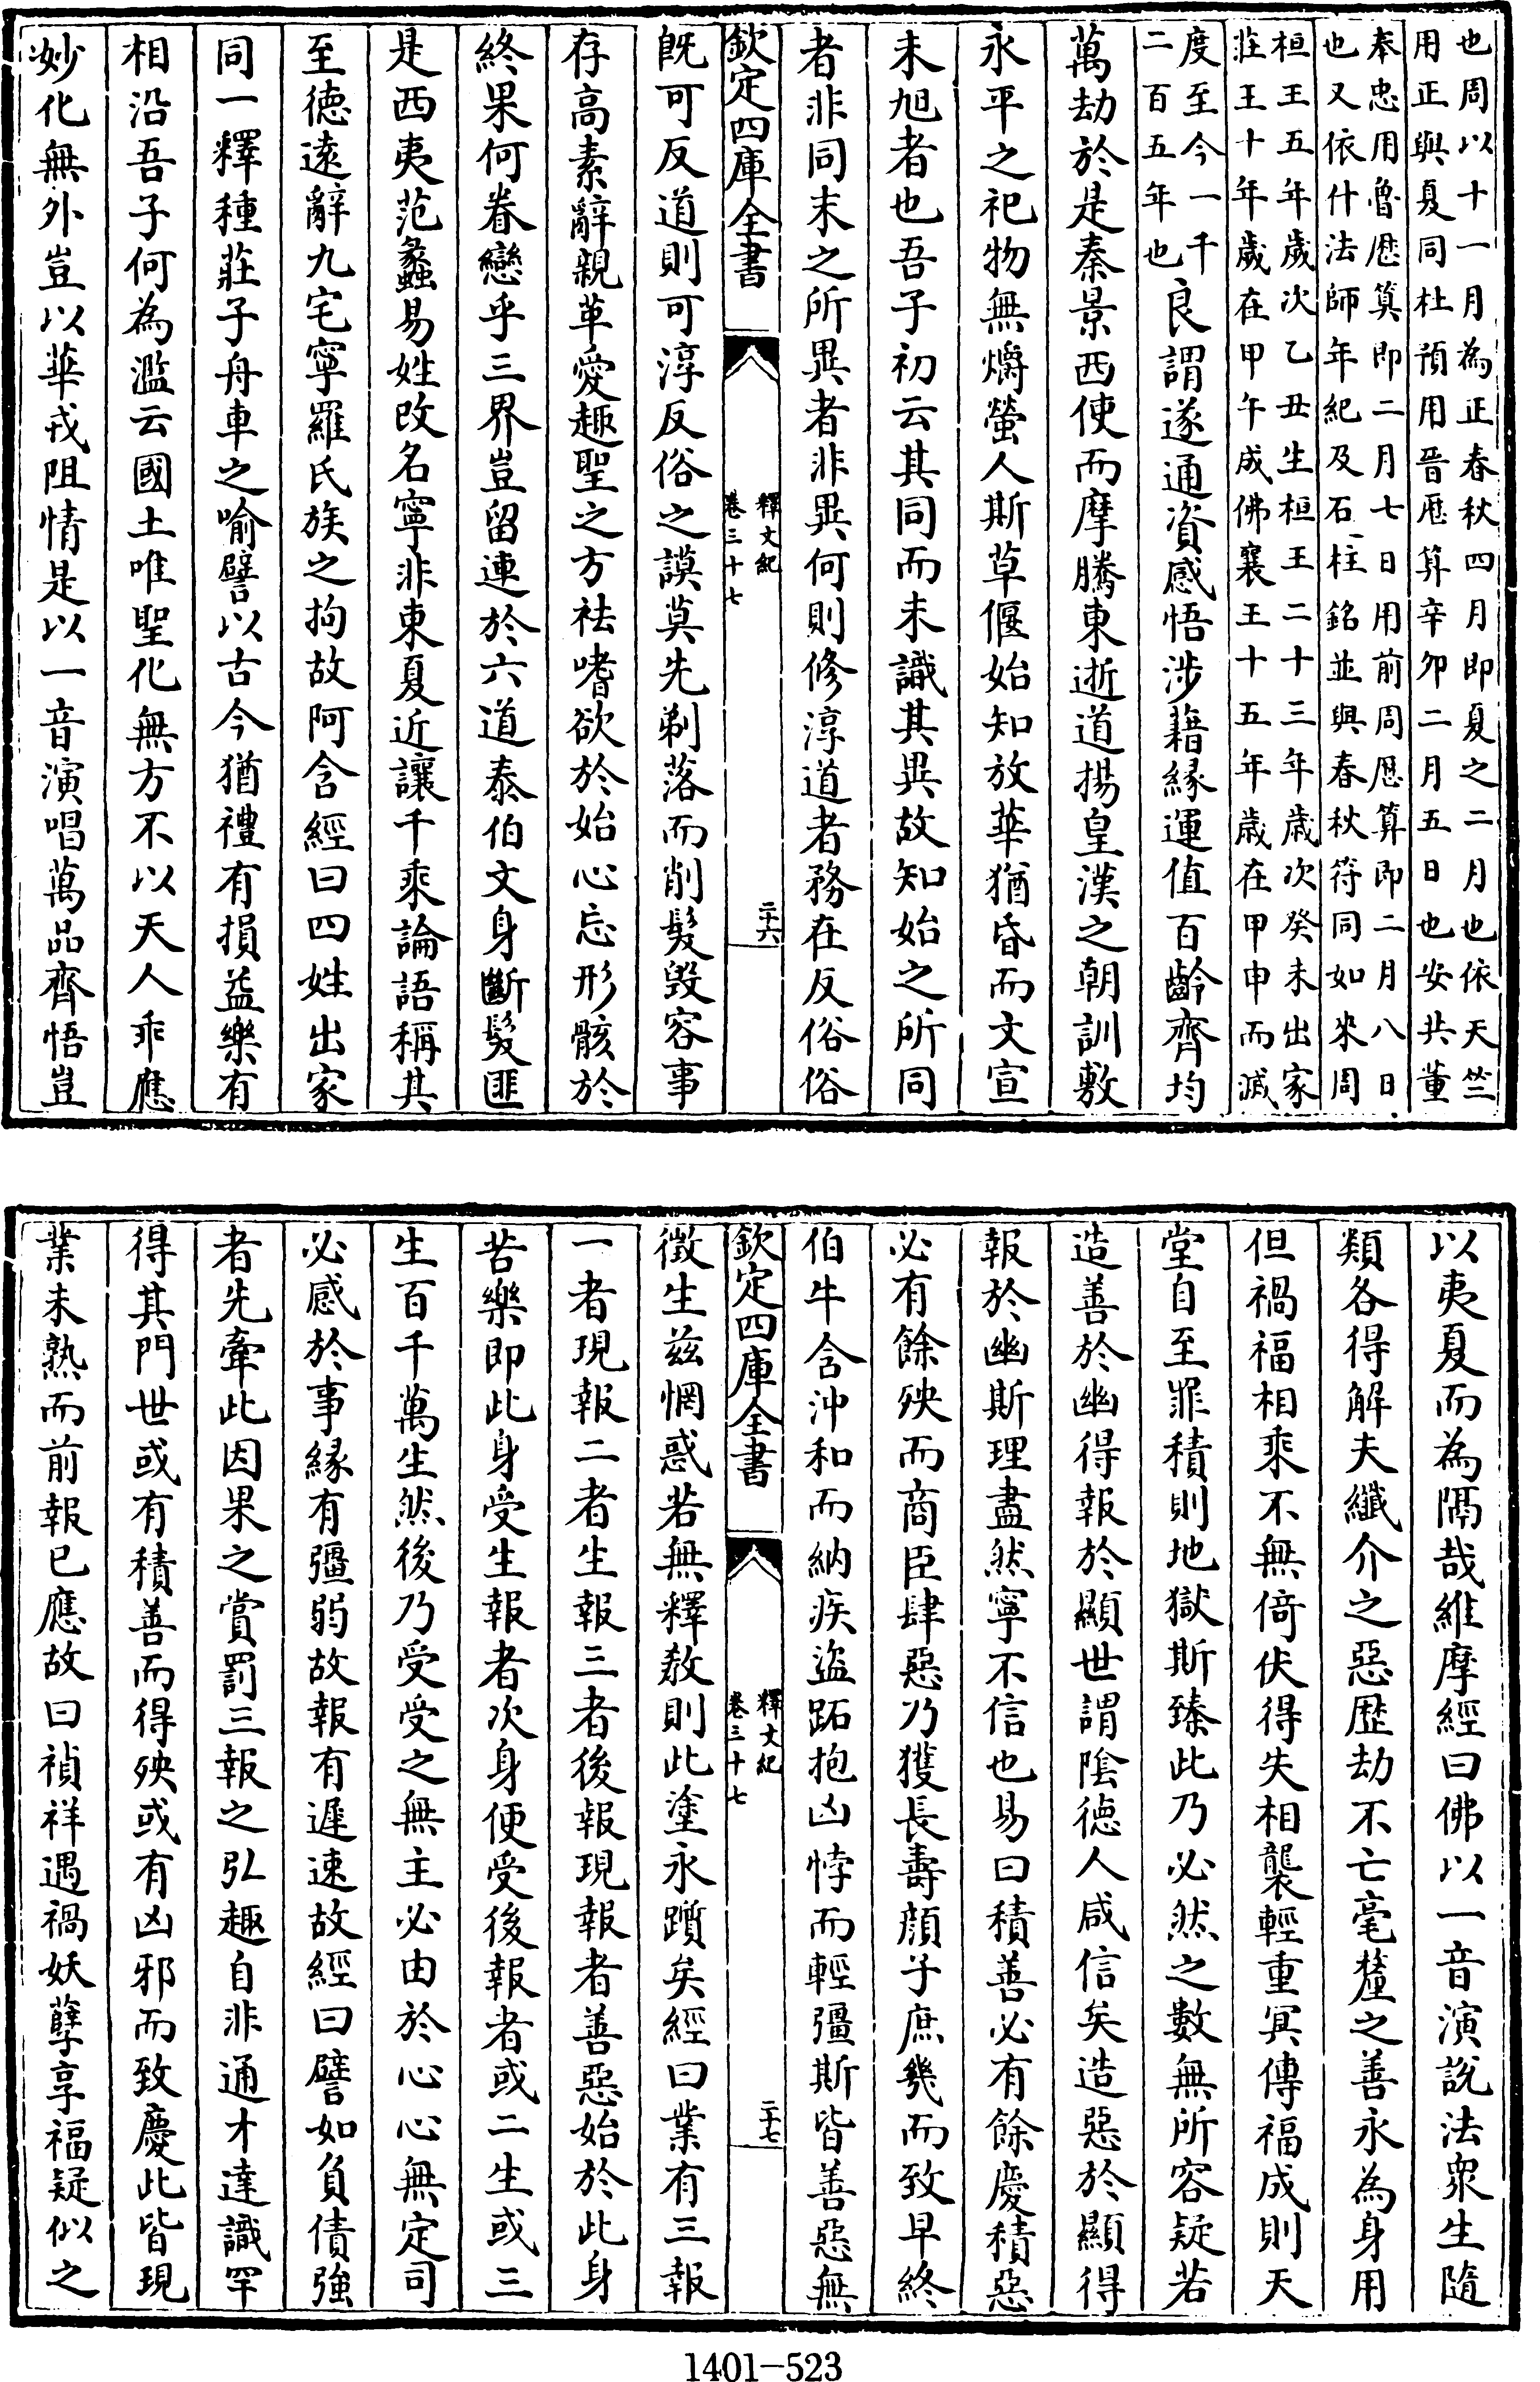 也周以十一月為正春秋四月即夏之二月也依天竺
用正與夏同杜預用晉厯算辛夘二月五日也安共董
奉忠用魯厯算即二月七日用前周厯算即二月八日
也又依什法師年紀及石柱銘並與春秋符同如來周
桓王五年歲次乙丑生桓王二十三年歲次癸未出家
莊王十年歲在甲午成佛襄王十五年歲在甲申而滅
度至今一千
二百五年也
良謂遂通資感悟涉藉緣運值百齡齊均
萬劫於是秦景西使而摩騰東逝道揚皇漢之朝訓敷
永平之祀物無爝螢人斯草偃始知放華猶昏而文宣
未旭者也吾子初云其同而未識其異故知始之所同
者非同末之所異者非異何則修淳道者務在反俗俗
欽定四庫全書
釋文紀
卷三十七
二十六
旣可反道則可淳反俗之謨莫先剃落而削髮毀容事
存高素辭親革愛趣聖之方祛嗜欲於始心忘形骸於
終果何眷戀乎三界豈留連於六道泰伯文身斷髮匪
是西夷范蠡易姓改名寧非東夏近讓千乘論語稱其
至德遠辭九宅寧羅氏族之拘故阿含經曰四姓出家
同一釋種莊子舟車之喻譬以古今猶禮有損益樂有
相沿吾子何為濫云國土唯聖化無方不以天人乖應
妙化無外豈以華戎阻情是以一音演唱萬品齊悟豈
以夷夏而為隔哉維摩經曰佛以一音演說法衆生隨
類各得解夫纖介之惡歷劫不亡毫釐之善永為身用
但禍福相乘不無倚伏得失相襲輕重冥傳福成則天
堂自至罪積則地獄斯臻此乃必然之數無所容疑若
造善於幽得報於顯世謂陰德人咸信矣造惡於顯得
報於幽斯理盡然寧不信也易曰積善必有餘慶積惡
必有餘殃而商臣肆惡乃獲長壽顔子庶幾而致早終
伯牛含沖和而納疾盜跖抱凶悖而輕彊斯皆善惡無
欽定四庫全書
釋文紀
卷三十七
二十七
徵生兹惘惑若無釋教則此塗永躓矣經曰業有三報
一者現報二者生報三者後報現報者善惡始於此身
苦樂即此身受生報者次身便受後報者或二生或三
生百千萬生然後乃受受之無主必由於心心無定司
必感於事緣有彊弱故報有遲速故經曰譬如負債強
者先牽此因果之賞罰三報之弘趣自非通才達識罕
得其門世或有積善而得殃或有凶邪而致慶此皆現
業未熟而前報已應故曰禎祥遇禍妖孽享福疑似之
1401-523